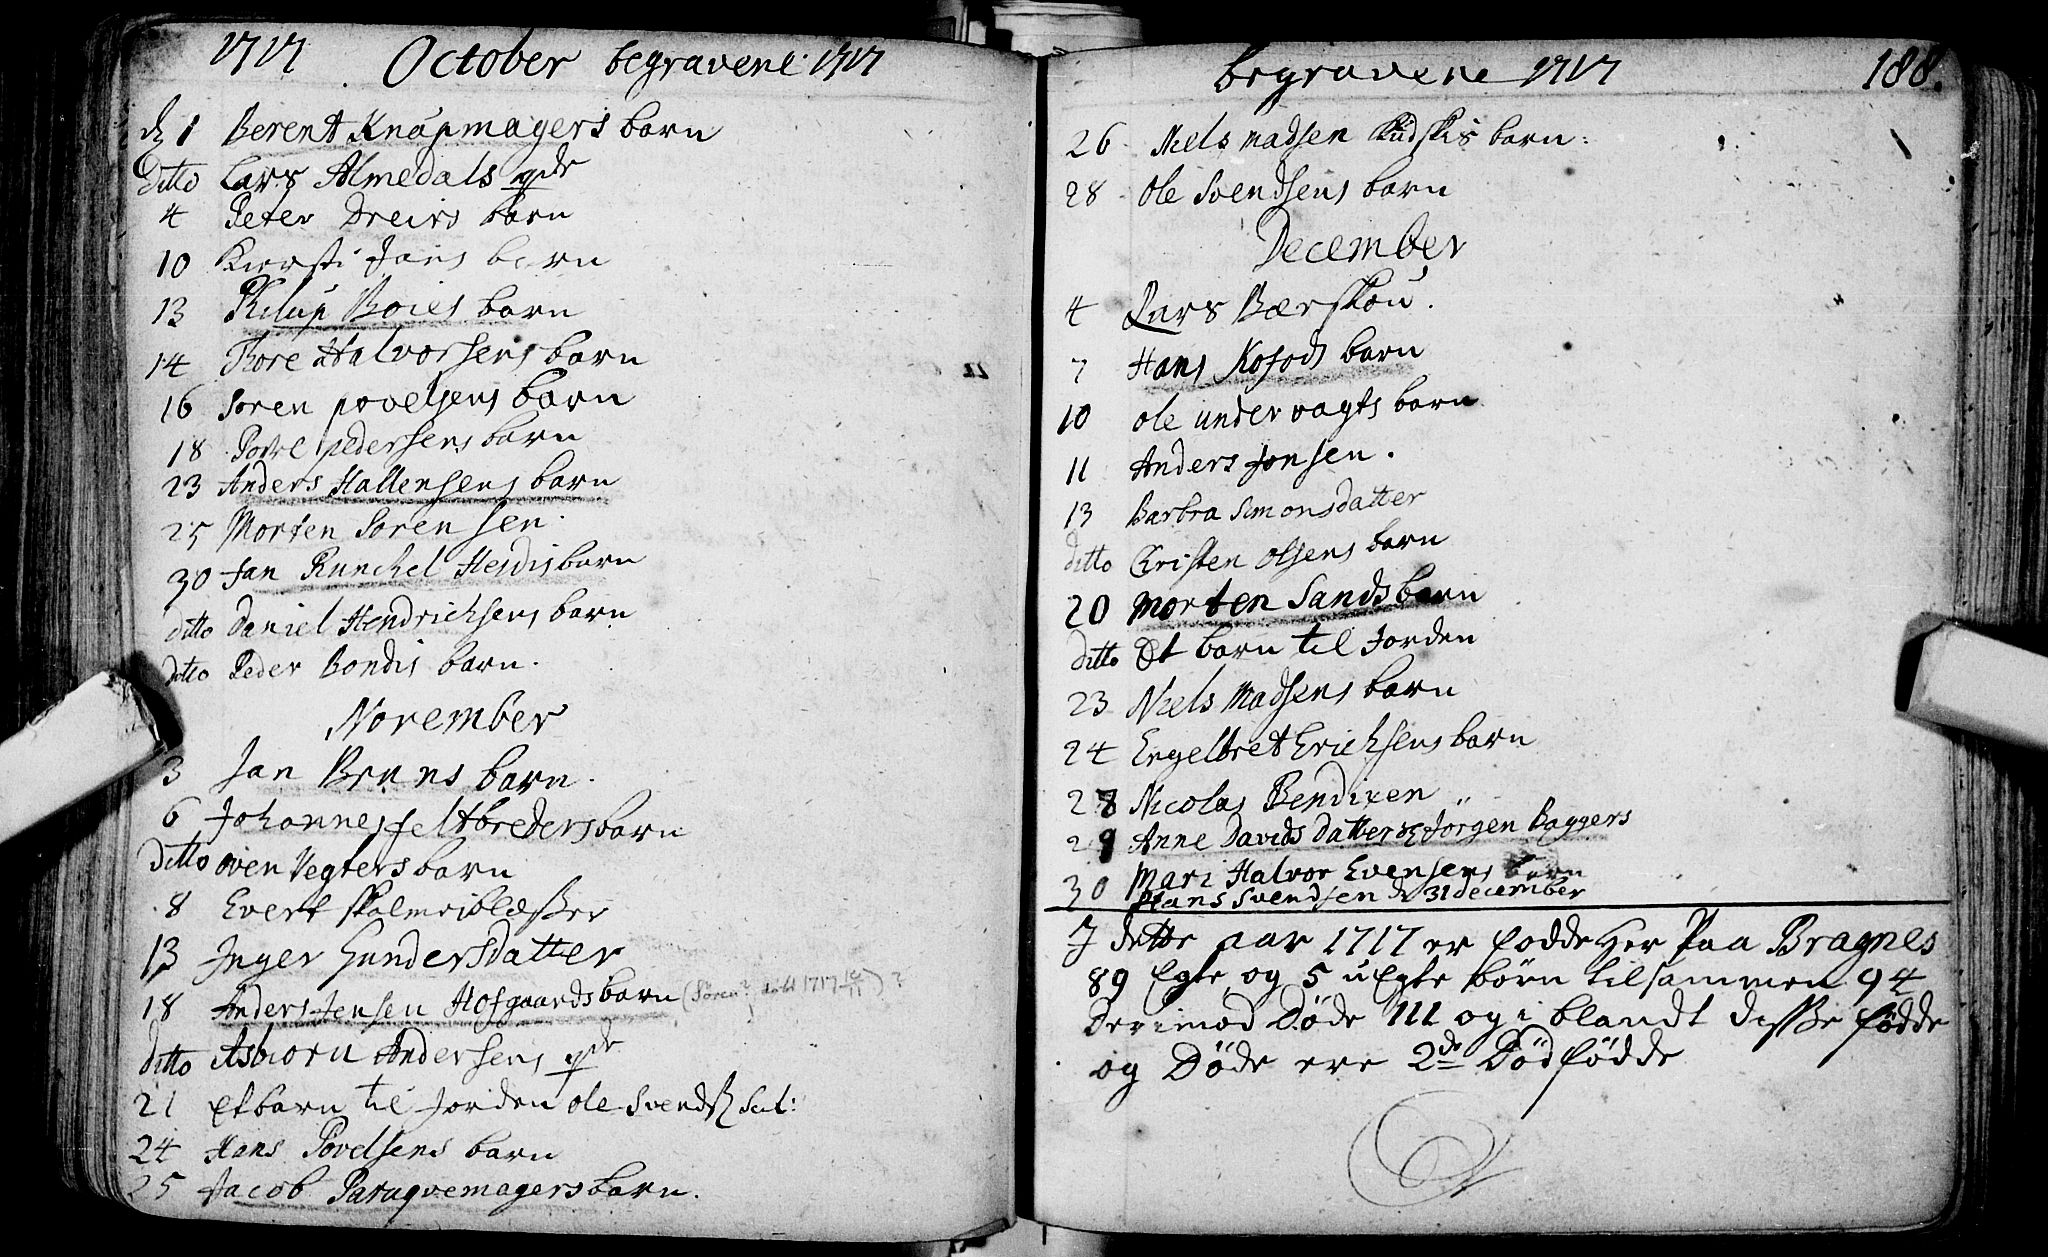 1717 October begravene 1717
d 1 Berent Knapmagers barn
ditto Lars Almedals qde
4 Peter Dreirs barn
10 Kiersti Jans barn
13 Philip Boies barn
14 Thore Halvorsens barn
16 Soren povelsens barn
18 Povel pedersens barn
23 Anders Hallensens barn
25 Morten Sorensen.
30 Jan Runchel Heidis barn
ditto Daniel Hendrichsens barn
ditto Peder Bondis barn.
November
3 Jan Bruns barn.
6 Johannes feltbereders barn
Ditto oven Vegters barn
8 Evert skalmeiblæsser
13 Inger Gundersdatter
18 Anders Jensen Hofgaards barn (Søren? død 1717 )?
ditto Asbiorn Andersens qde
21 et barn til Jorden ole Svends
24 Hans Povelsens barn
25 Jacob Paruqvemagers barn.
begravene 1717 188.
26 Niels Madsen Kudskis barn:
28 Ole Svendsens barn
December
4 Lars Bærskou.
7 Hans Kofods barn
10 ole undervagts barn
11 Anders Jonsen.
13 Barbra Simonsdatter
ditto Christen Olsens barn
20 Morten Sands barn
ditto Et barn til Jorden
23 Niels Madsens barn
24 Engelbret Erichsens barn
28 Nicolas Bendixen
29 Anne Davids Datter Jörgen Baggers
30 Mari Halvor Evensens barn
Hans Svendsen d 31 december
I dette aar 1717 er fodde Her paa Bragnes
89 Egte og 5 uEgte börn tilsammen 94
Derimod Døde 111 og i blandt disse födde
og Döde ere 2de Dödfödde